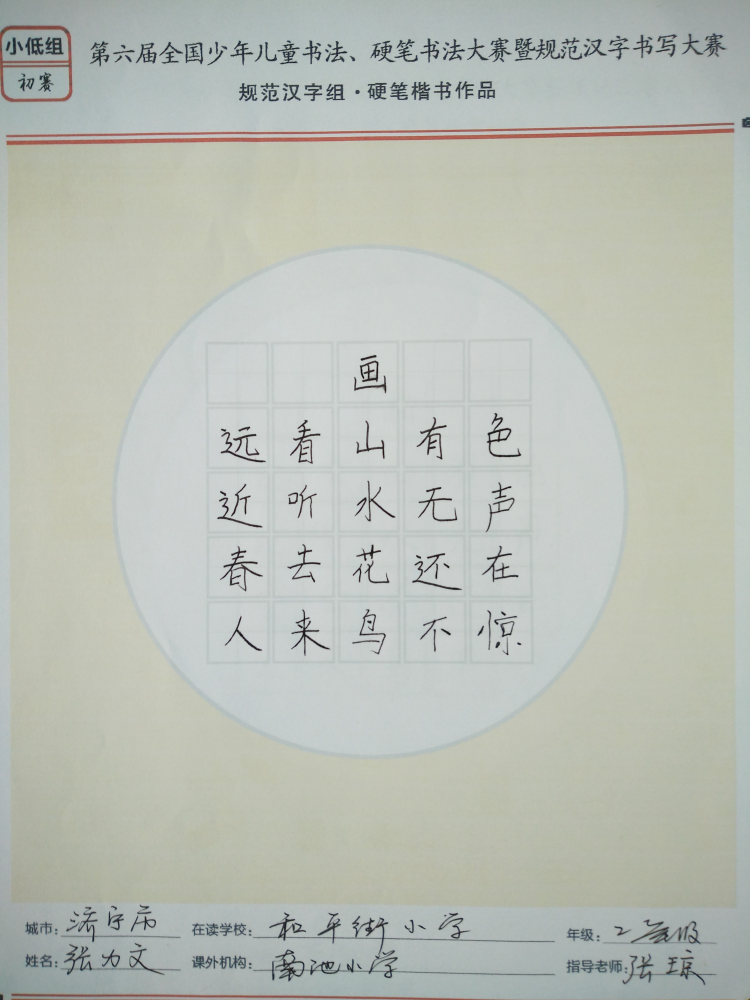 小低组
初赛
第六届全国少年儿童书法、硬笔书法大赛暨规范汉字书写大赛
规范汉字组·硬笔楷书作品
画
远看山有色
近听水无声
春去花还在
人来鸟不惊
城市: 济宁市 在读学校: 和平街小学 年级: 二年级
姓名: 张力文 课外机构: 南池小学 指导老师: 张琼